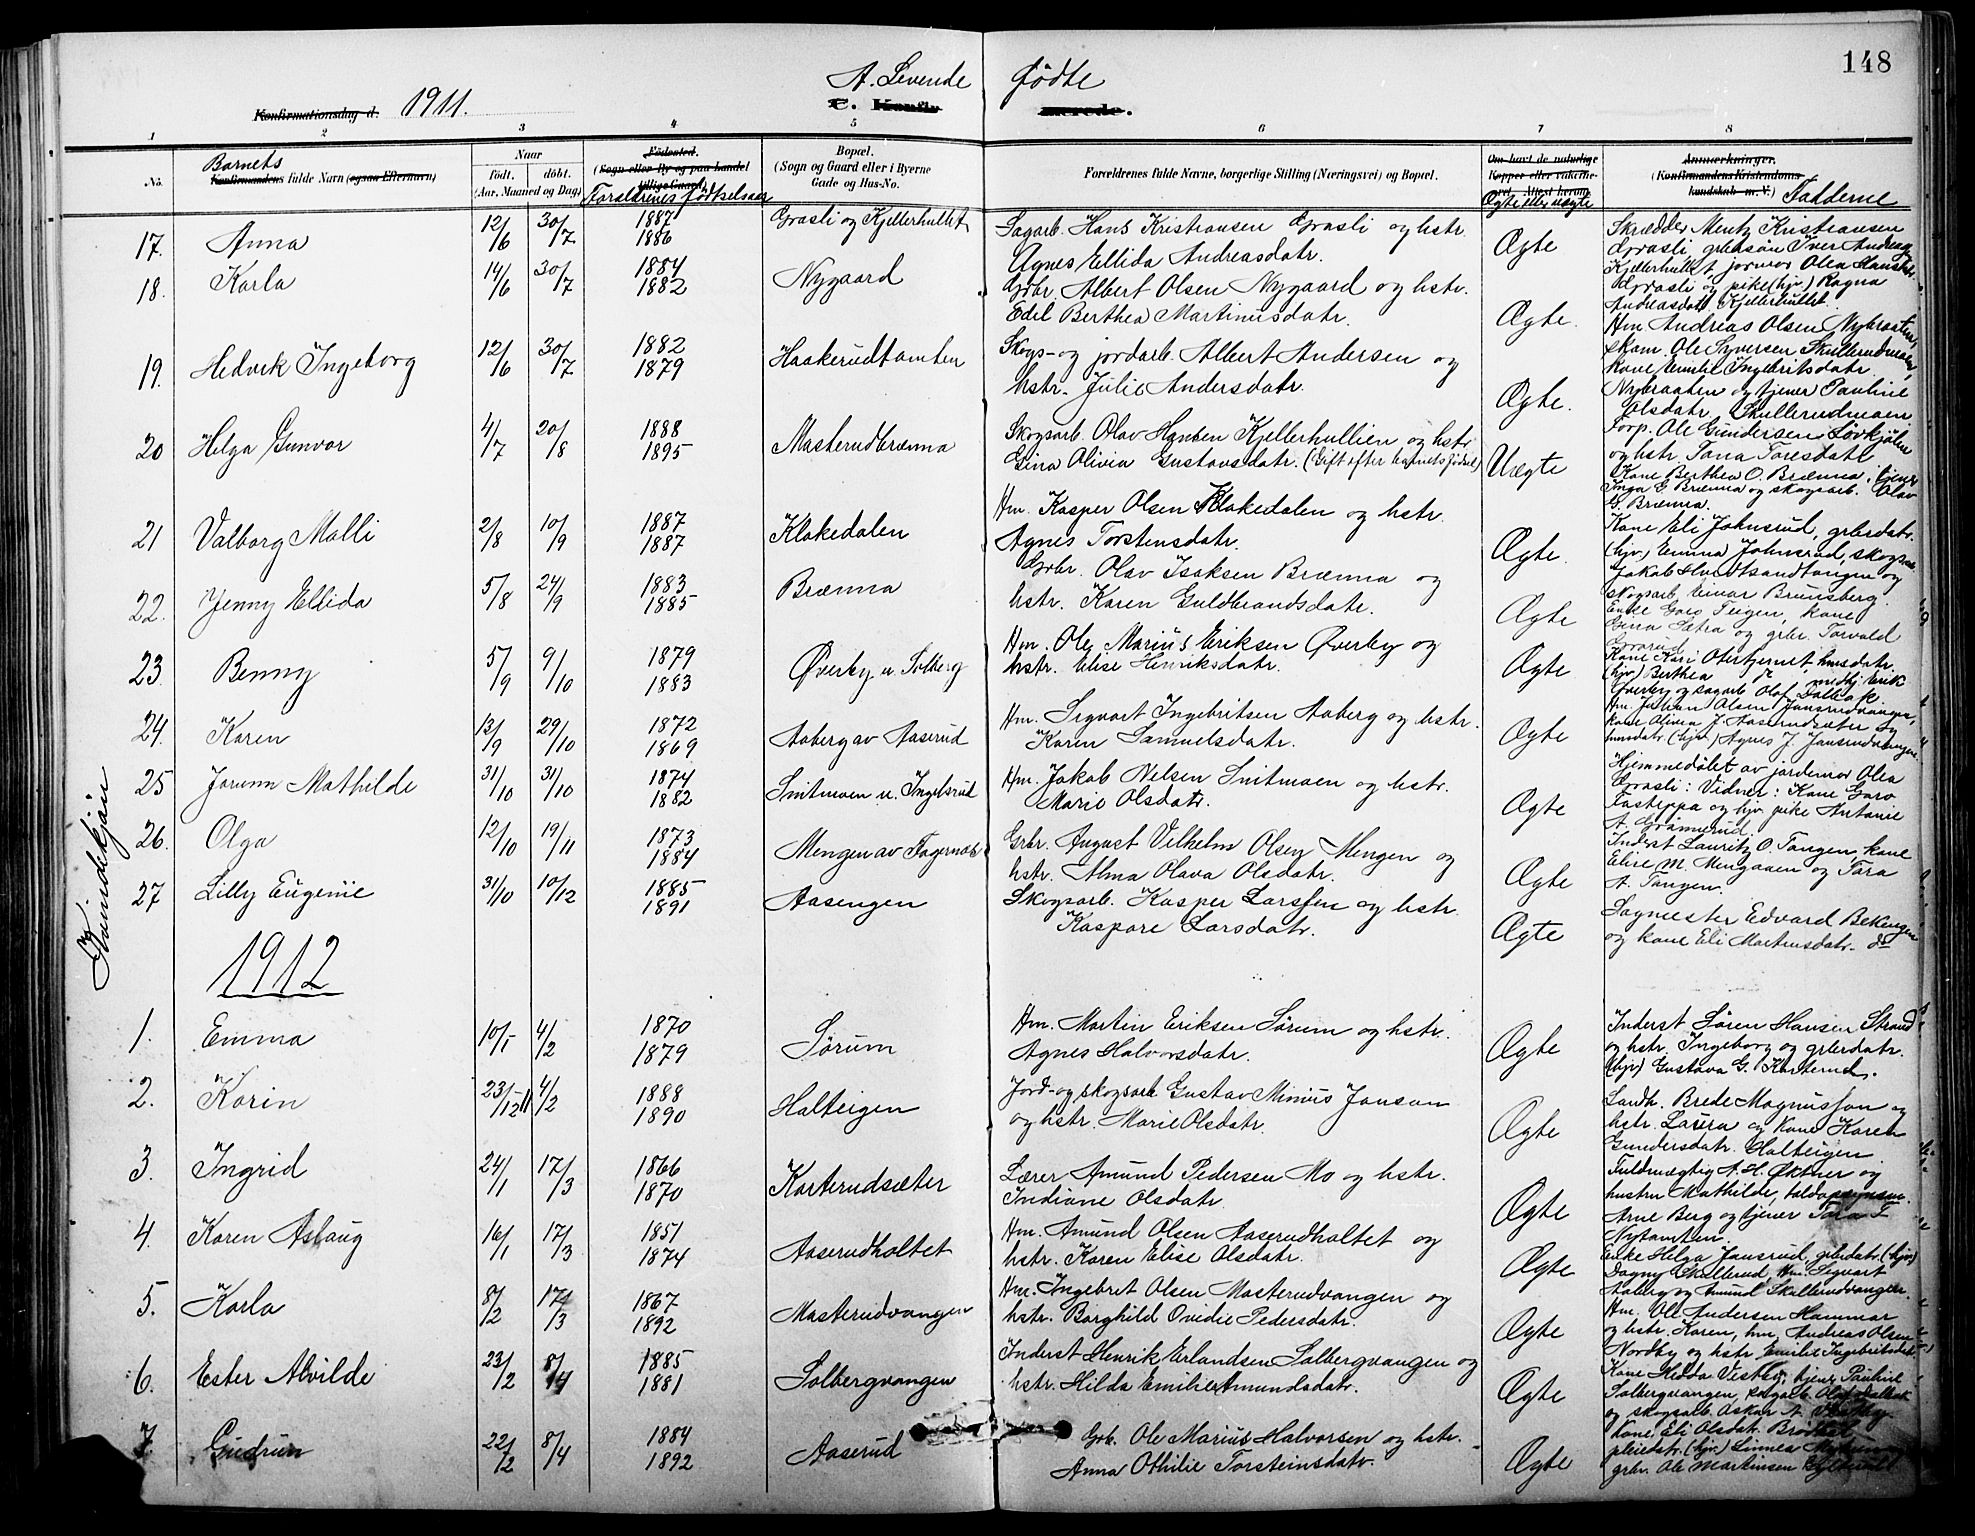 148
A. Levende Fødte
Konfirmationsdag d. 1911. C. Konfirmerede.
1 2 3 4 5 6 7 8
No. Barnets Konfirmandens fulde Navn (ogsaa Efternavn)
Naar født. døbt. (Aar, Maaned og Dag)
Fødested. (Sogn eller By og paa Landet tillige Gaard) Forældrenes fødselsaar
Bopæl. (Sogn og Gaard eller i Byerne Gade og Hus-No.
Forældrenes fulde Navne, borgerlige Stilling (Næringsvei) og Bopæl.
Om havt de naturlige Kopper eller vaccineret. Ægte eller uægte
Anmerkninger. (Konfirmandens Kristendomskundskab m. V.) Fadderne
17. Anna 12/6 30/7 1887 1886 Grasli og Kjellerhullet Sagarb. Hans Kristiansen Grasli og hstr. Agnes Ellida Andreasdatr. Ægte
Skrædder Mentz Kristiansen
Grasli, grbrsøn Iver Andreas
Kjellerhullet, jormor Olea Hansdtr.
Grasli og pike (hjv.) Ragna
Andreasdatr. Kjellerhullet.
18. Karla 14/6 30/7 1884 1882 Nygaard Grbr. Albert Olsen Nygaard og hstr. Edel Berthea Martinusdatr. Ægte.
Hm. Andreas Olsen Nybraaten,
Ole Syversen Skullerudmoen,
kone Emilie Ingebritsdatr.
Nybraaten og tjener Pauline
Olsdatr. Skullerudmoen
19. Hedvik Ingeborg 12/6 30/7 1882 1879 Haakerudtomten Skogs- og jordarb. Albert Andersen og hstr. Julie Andersdatr. Ægte.
Forp. Ole Gundersen Løvkjølen
og hstr. Tana Toresdatr.
20 Helga Gunvor 4/7 20/8 1888 1895 Masterudbrænna Skogsarb. Olav Hansen Kjellerhullien og hstr. Gina Olivia Gustavsdatr. (Gift efter barnets fødsel) Uægte
Kone Berthea O. Brænna, tjener
Inga G. Brænna og skogsarb. Olav
G. Brænna.
21 Valborg Malli 2/8 10/9 1887 1887 Klakedalen Hm. Kasper Olsen Klakedalen og hstr. Agnes Torstensdatr. Ægte.
Kone Eli Johnsrud, grbrsdatr.
(hjv.) Emma Johnsrud, skogsarb.
Jakob og
skogsarb. Einar Brunsberg.
22. Jenny Ellida 5/8 24/9 1883 1885 Brænna Grbr. Olav Isaksen Brænna og hstr. Karen Guldbrandsdatr. Ægte
Enke Goro Teigen, kone
Gina Sætra og grbr. Torvald
Grarud
23 Benny 5/9 9/10 1879 1883 Øverby u. Solberg Hm. Ole Marius Eriksen Øverby og hstr. Elise Henriksdatr. Ægte
Kone Kari Otertjernet husdatr.
(hjv.) Berthea medhj. Erik
Øverby og sagarb. Olaf Dalbak
24. Karen 13/9 29/10 1872 1869 Aaberg av Aaserud Hm. Sigvart Ingebritsen Aaberg og hstr. Karen Samuelsdatr. Ægte
Hm. Johan Olsen Jansrudvangen,
kone Olivia J. Aaserudsæter og
husdatr. (hjv.) Agnes J. Jansrudvangen.
25 Jorunn Mathilde 31/10 31/10 1874 1882 Snitmoen u. Ingelsrud Hm. Jakob Nelsen Snitmoen og hstr. Marie Olsdatr. Ægte
Hjemmedøbt av jordemor Olea
Grasli: Vidner: Kone Goro
og hjv. pike Antonie
A. Grønnerud.
26. Olga 12/10 19/11 1873 1884 Mengen av Fagernæs Grbr. August Vilhelm Olsen Mengen og hstr. Alma Olava Olsdatr. Ægte
Inderst Lauritz O. Tangen, kone
Elise M. Mengaaen og Tara
A. Tangen.
27 Lilly Eugenie 31/10 10/12 1885 1891 Aasengen Skogsarb. Kasper Larssen og hstr. Kaspare Larsdatr. Ægte
Sagmester Edvard Bekengen
og kone Eli Martinsdatr. do
Kundskjøn
1912
1. Emma 10/1 4/2 1870 1879 Sørum Hm. Martin Eriksen Sørum og hstr. Agnes Halvorsdatr. Ægte
Inderst Søren Hansen Strand
og hstr. Ingeborg og grbrdatr.
(hjv) Gustava G. Karterud.
2. Karin 23/12 11 4/2 1888 1890 Halteigen Jord- og skogsarb. Gustav Minius Janson og hstr. Marie Olsdatr. Ægte
Landh. Brede Magnussøn og
hstr. Laura og kone Karen
Gundersdatr. Halteigen.
3. Ingrid 24/1 17/3 1866 1870 Karterudsæter Lærer Amund Pedersen Mo og hstr. Indiane Olsdatr. Ægte
Fuldmægtig A. H. Øktner og
hustru Mathilde, toldopsynsm.
Arne Berg og tjener Tora T.
Nytomten.
4. Karen Aslaug 16/1 17/3 1851 1874 Aaserudholtet Hm. Amund Olsen Aaserudholtet og hstr. Karen Elise Olsdatr. Ægte
Enke Helga Jansrud, grbrdatr. (hjv.)
Dagny Skullerud, Hm. Sigvart
Aaberg og Amund Skullerudvangen.
5. Karla 8/2 17/3 1867 1892 Masterudvangen Hm. Ingebret Olsen Masterudvangen og hstr. Borghild Ovidie Pedersdatr. Ægte
Hm. Ole Andersen Hammar
og hstr. Karen, hm. Andreas Olsen
Nordby og hstr. Emilie Ingebritsdatr.
6. Ester Alvilde 23/2 8/4 1885 1881 Solbergvangen Inderst Henrik Erlandsen Solbergvangen og hstr. Hilda Emilie Amundsdatr. Ægte
Kone Hedda Vestby, tjener Pauline
Solbergvangen, sagarb. Olaf Dalbak
og skogsarb. Oskar A.
7. Gudrun 22/2 8/4 1884 1892 Aaserud Grb. Ole Marius Halvorsen og hstr. Anna Othilie Torsteinsdatr. Ægte
Kone Eli Olsdatr.
(hjv.) Linnea
grbr. Ole Martinsen